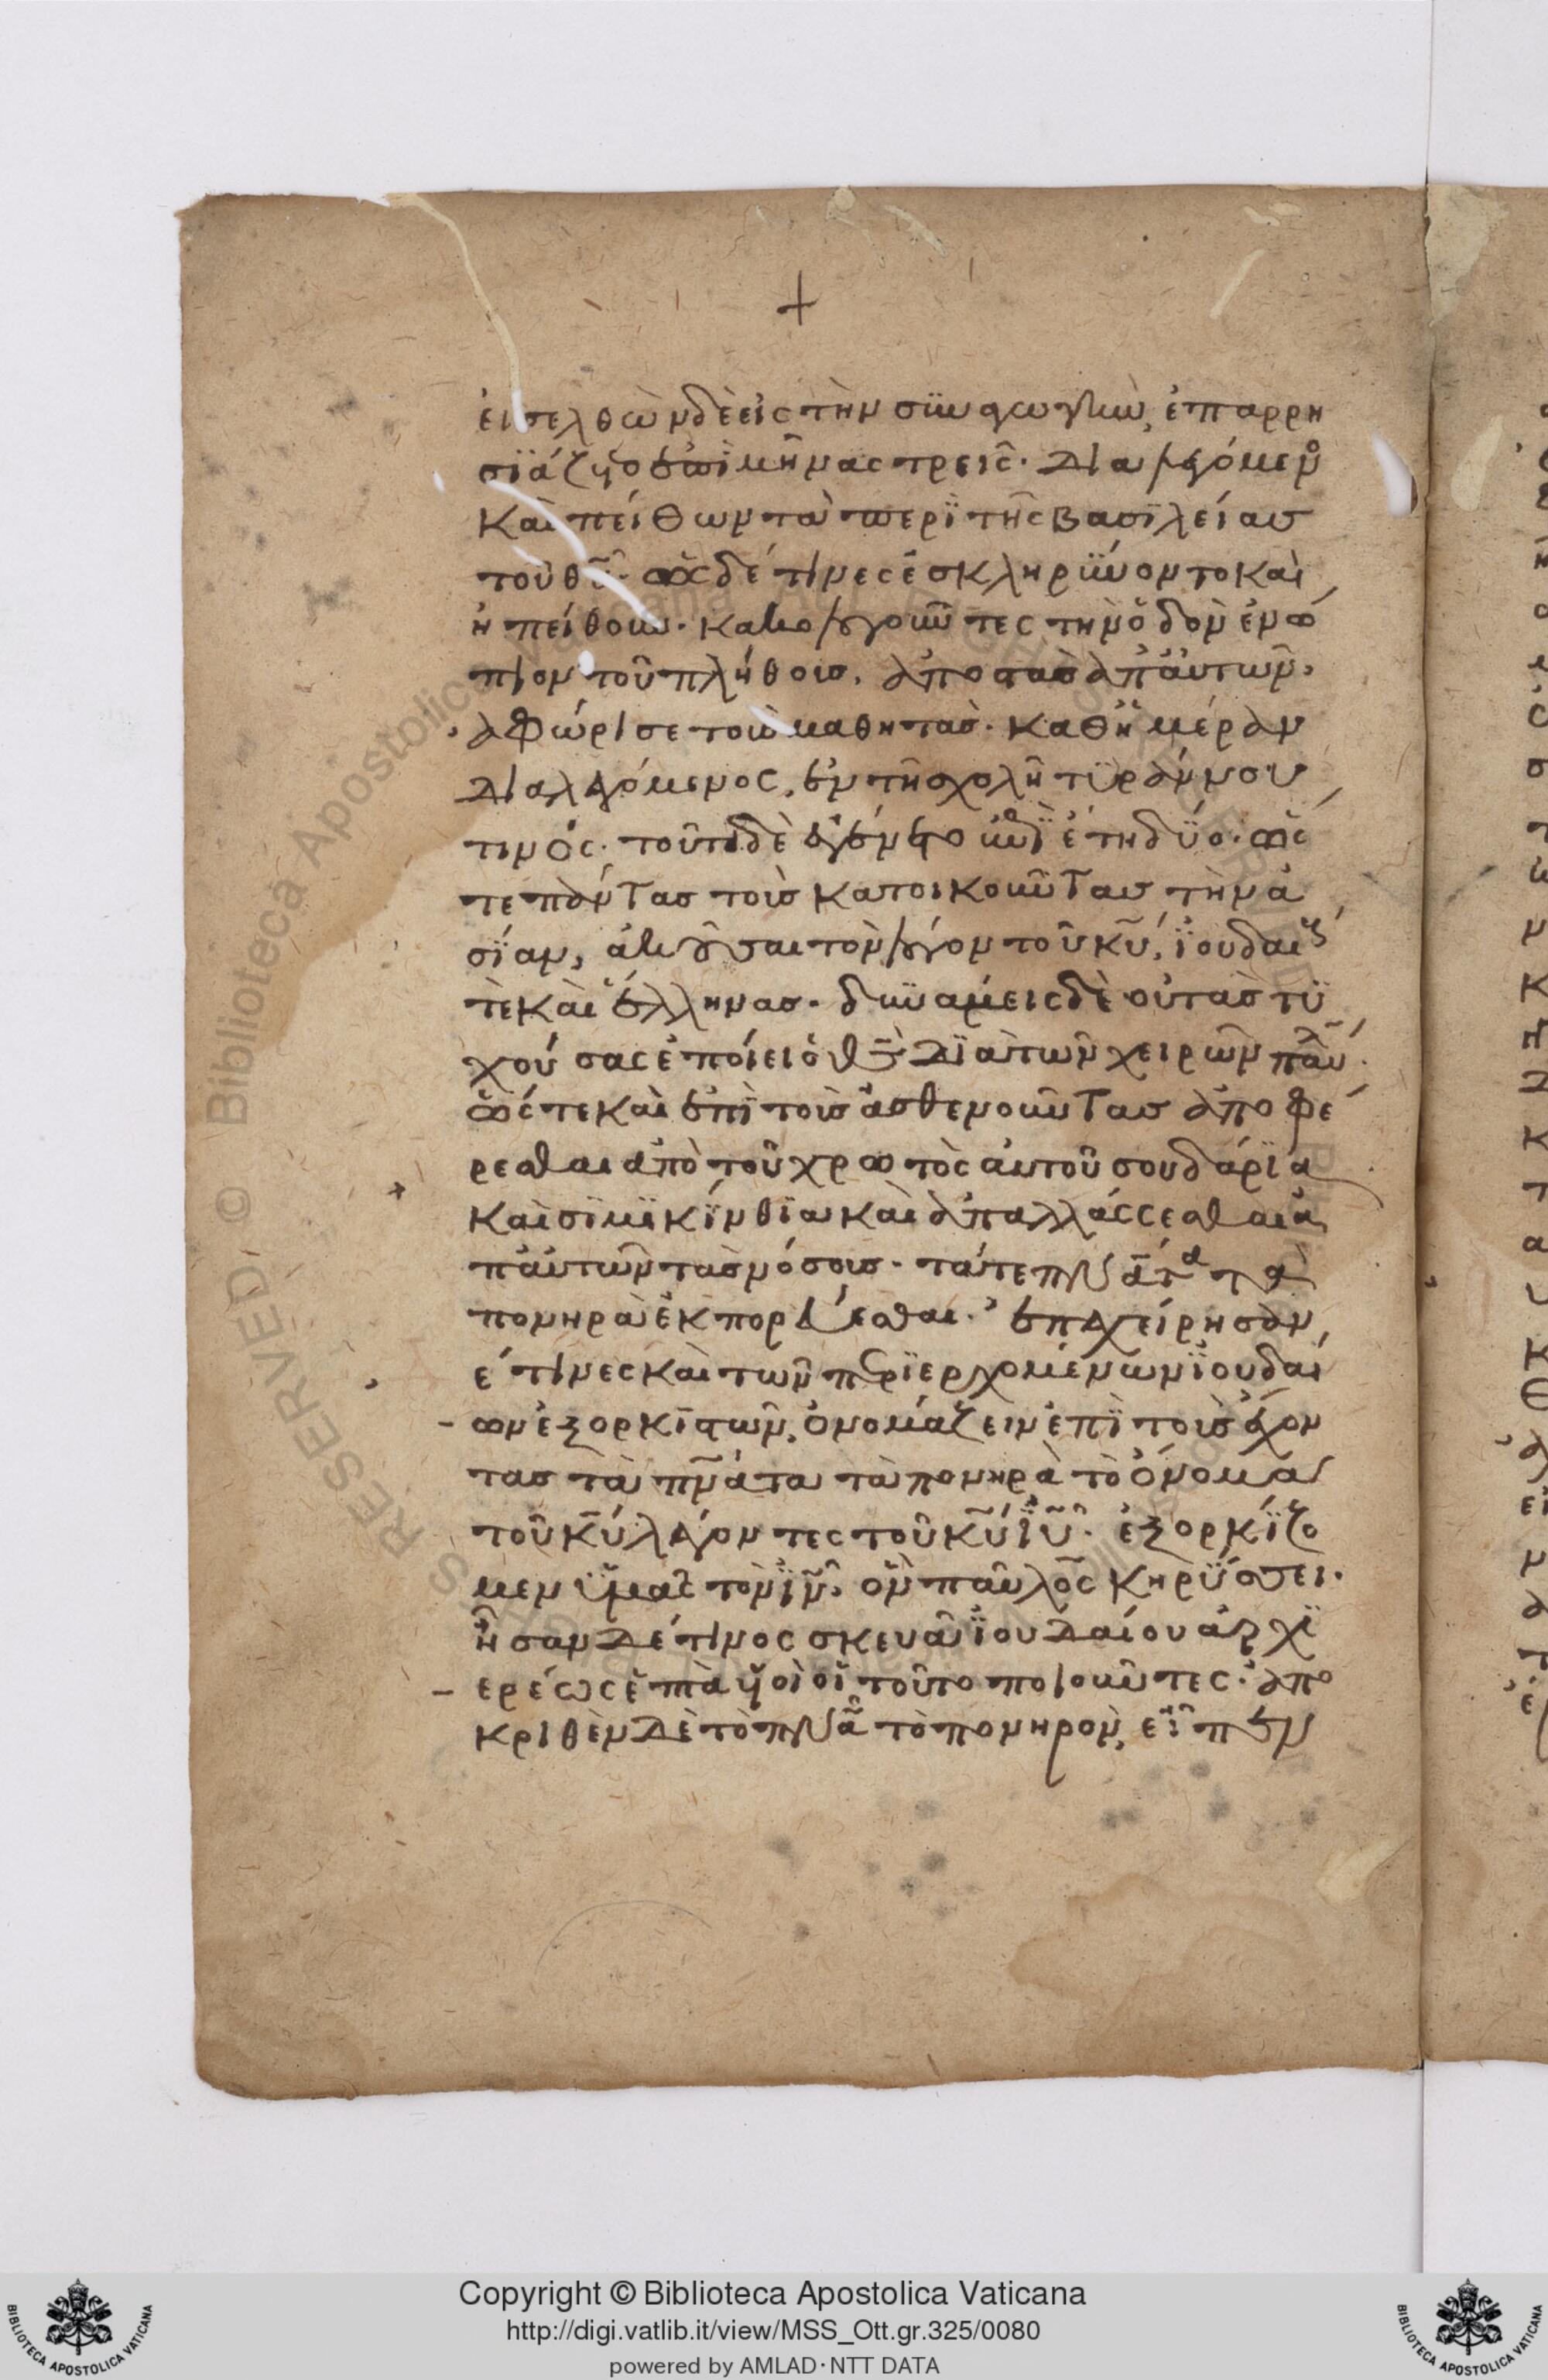 +
εισελθὼν δὲ εἰς τὴν συναγωγὴν, ἐπαρρη
σϊάζετο ἐπὶ μῆνας τρεῖς· διαλεγόμενο
καὶ πείθων τὰ περὶ τῆς βασϊλείας
τοῦ θῦ· ὡς δέ τινες ἐσκληρύνοντο καὶ
ἠπείθουν· κακολογοῦντες τὴν ὁδὸν ἐνώ
πιον τοῦ πλήθους, ἀποστὰς ἀπ' αὐτῶν,
ἀφώρισε τοὺς μαθητὰς· καθ' ἡμέραν
διαλεγόμενος, ἐν τῇ σχολῇ τϋράννου
τινός· τοῦτο δὲ ἐγένετο ἐπὶ ἔτη δύο· ὥς
τε πάντας τοὺς κατοικοῦντας τὴν ἀ
σίαν, ἀκοῦσαι τὸν λόγον τοῦ κῦ, ϊουδαίους
τὲ καὶ ἕλληνας· δυνάμεις δὲ οὐ τὰς τϋ
χούσας ἐποίει ὁ θς διὰ τῶν χειρῶν παύλου·
ὥς τε καὶ ἐπὶ τοὺς ἀσθενοῦντας ἀποφέ
ρεσθαι ἀπὸ τοῦ χρωτὸς αὐτοῦ σουδάρια
καὶ σϊμϊκίνθϊα καὶ ἀπαλλάσσεσθαι ἀ
π' αὐτῶν τὰς νόσους· τά τε πνᾶτα τὰ
πονηρὰ ἐκπορεύεσθαι· ἐπεχείρησαν
ἑ τινες καὶ τῶν περϊερχομένων ϊουδαί
ων ἐξορκιστῶν, ὀνομάζειν ἐπὶ τοὺς ἔχον
τας τὰ πνᾶτα τὰ πονηρὰ τὸ ὄνομα
τοῦ κῦ λέγοντες τοῦ κῦ ϊῦ· ἐξορκίζο
μεν ϋμᾶς τὸν ϊν, ὃν παῦλος κηρύσσει·
ἦσαν δέ τινος σκευᾶ ϊουδαίου ἀρχϊ
ερέως ἑπτὰ υἱοὶ οἱ τοῦτο ποιοῦντες· ἀπο
κριθὲν δὲ τὸ πνᾶ τὸ πονηρὸν, εἶπεν
Copyright © Biblioteca Apostolica Vaticana
http://digi.vatlib.it/view/MSS_Ott.gr.325/0080
powered by AMLAD·NTT DATA